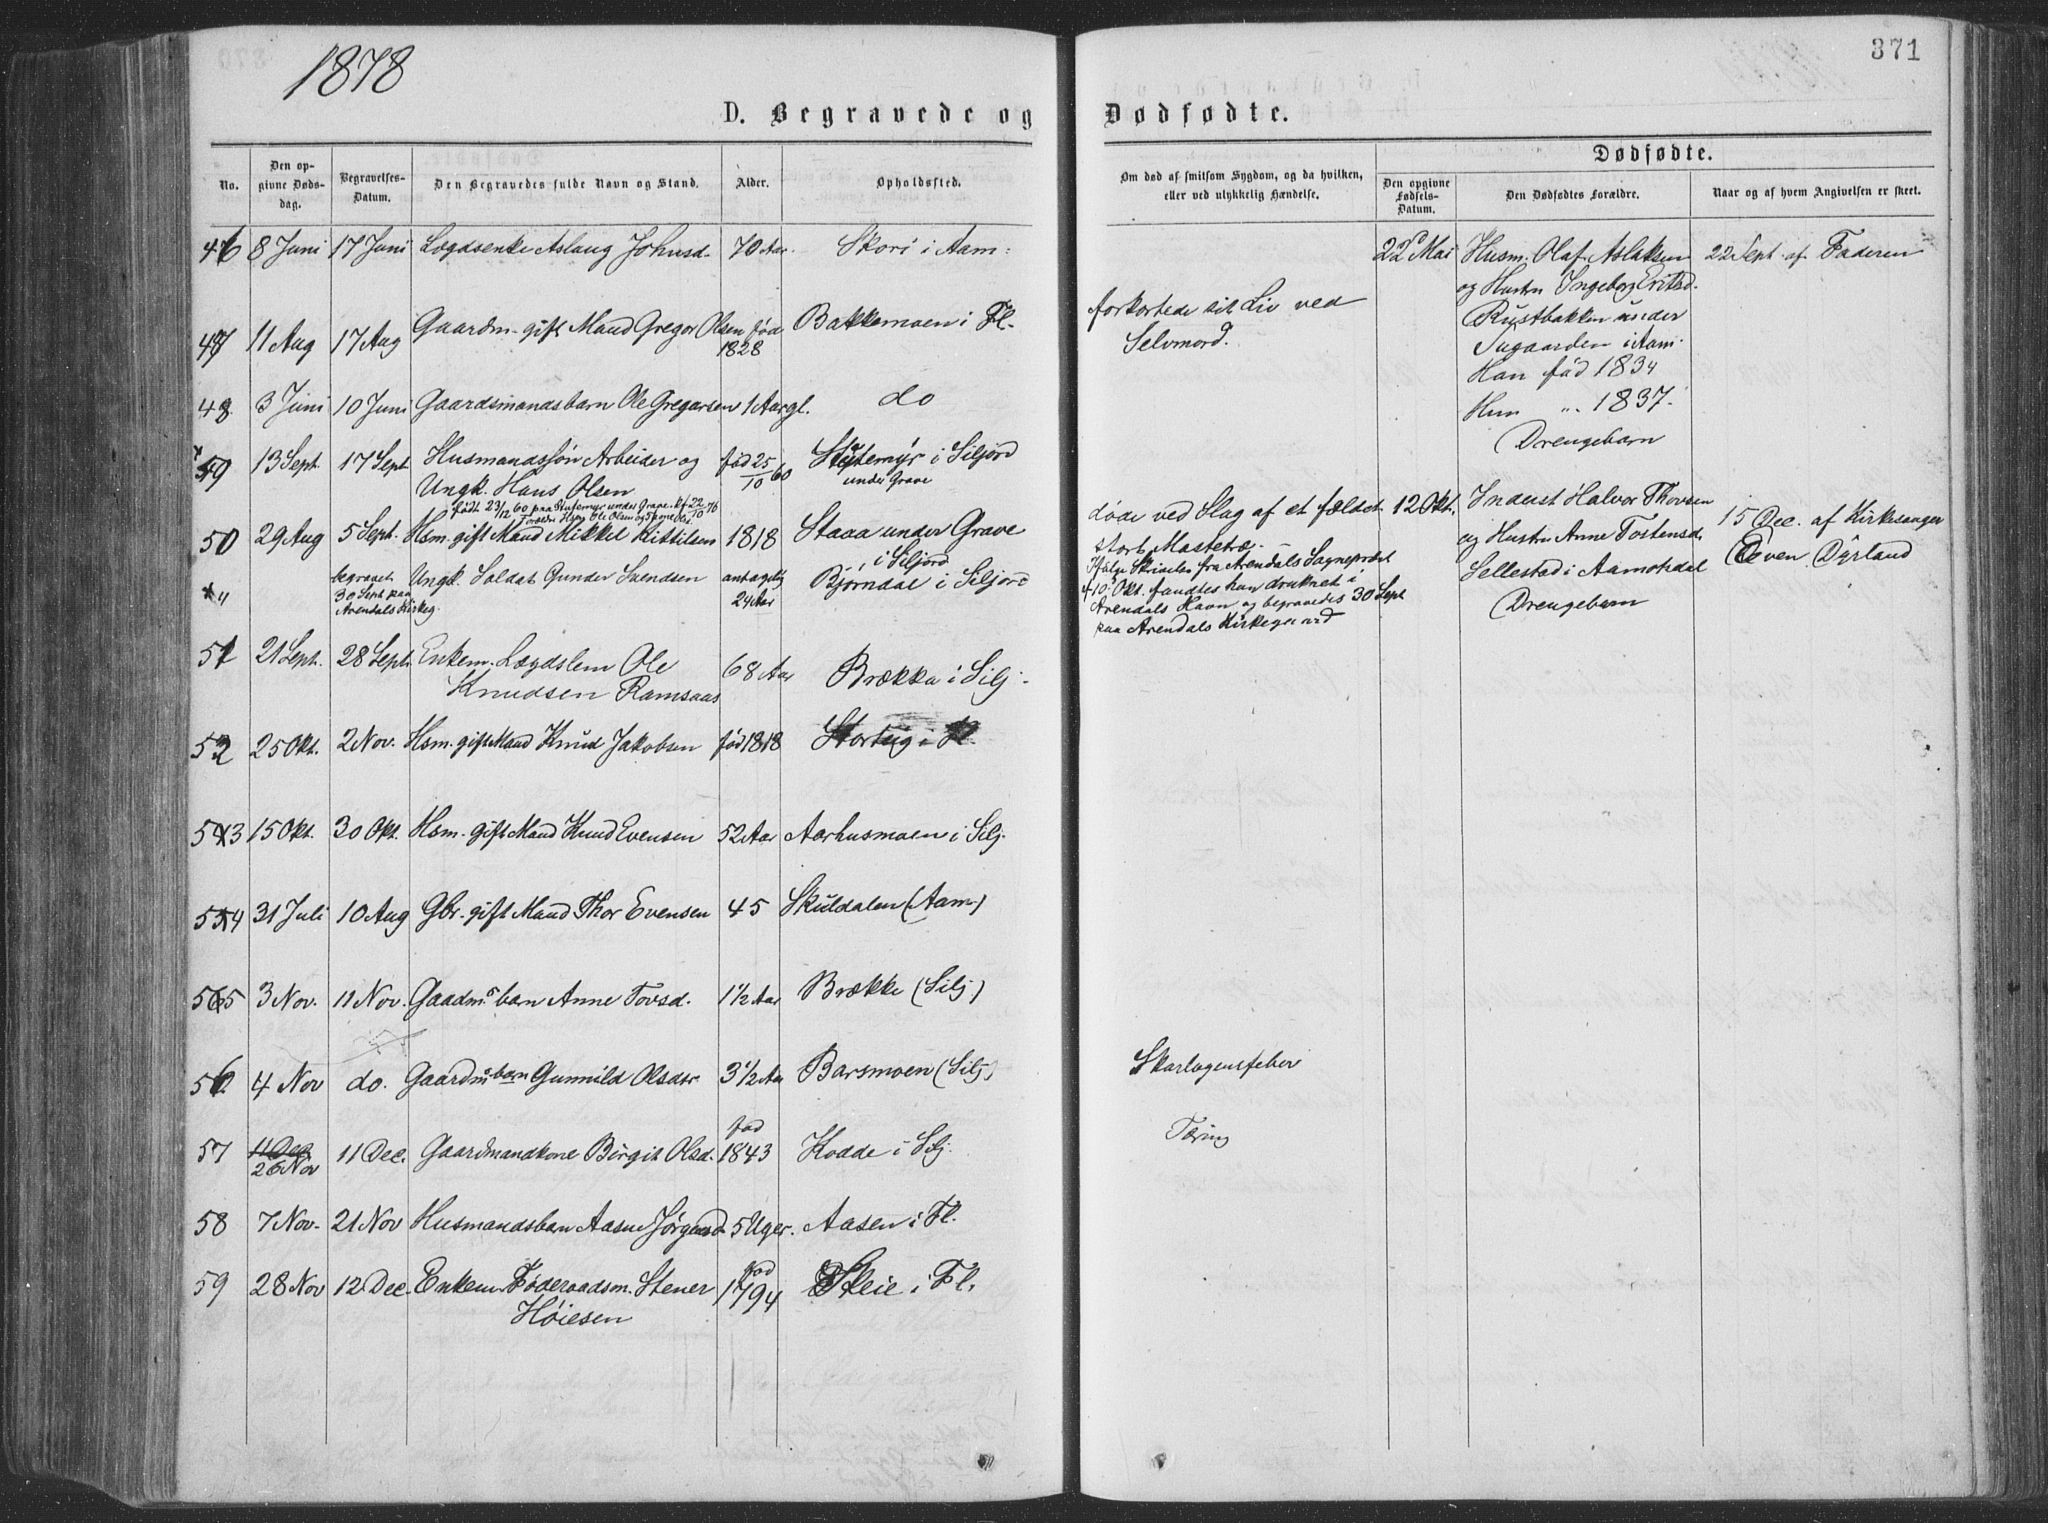 1878
371
D. Begravede og Dødfødte.
No.
Den opgivne Dødsdag.
Begravelses-Datum.
Den Begravedes fulde Navn og Stand.
Alder.
Opholdssted.
Om død af smitsom Sygdom, og da hvilken, eller ved ulykkelig Hændelse.
Dødfødte.
Den opgivne Fødsels-Datum.
Den Dødfødtes Forældre.
Naar og af hvem Angivelsen er skeet.
46 8 Juni 17 Juni Lægdsenke Aslaug Johnsd. 70 Aar. Skori i Aam:
47 11 Aug 17 Aug Gaardm. gift Mand Gregor Olsen fød 1828 Bakkemoen i Fl.
forkortede sit Liv ved
Selvmord.
48 3 Juni 10 Juni Gaardsmandsbarn Ole Gregarsen 1 Aar gl. do
49 13 Sept. 17 Sept Husmandssøn Arbeider og
Ungk. Hans Olsen
fød 25/10 60
i Siljord
under Grave
50 29 Aug 5 Sept. Hsm. gift Mand Mikkel Kittilsen 1818 Staaa under Grave
i Siljord
døde ved Slag af et fældet
stort Mastetræ.
" begravet
30 Sept paa
Arendals Kirkeg.
Ungk. Soldat Gunder Svendsen antagelig
24 Aar
Bjørndal i Siljord
Ifølge Skrivelse fra Arendals Sogneprest
10 Okt. fandtes han druknet i
Arendals Havn og begravedes 30 Sept
paa Arendals Kirkegaard
51 21 Sept. 28 Sept. Enkem. Lægdslem Ole
Knudsen Ramsaas
68 Aar Brækka i Silj.
52 25 Okt. 2 Nov. Hsm. gift Mand Knud Jakobsen fød 1818
53 15 Okt. 30 Okt. Hsm. gift Mand Knud Evensen 52 Aar Aarhusmoen i Silj.
54 31 Juli 10 Aug Gbr. gift Mand Thor Evensen 45 Skuldalen (Aam)
55 3 Nov. 11 Nov. Gaardms barn Anne Tovsd. 1½ Aar Brække (Silj)
56 4 Nov do. Gaardmsbarn Gunnild Olsdr 3½ Aar Barsmoen (Silj)
Skarlagensfeber
57 11 Dec
26 Nov
11 Dec. Gaardmandkone Birgit Olsd. fød 1843 Kodde i Silj.
Tæring
58 7 Nov. 21 Nov Husmandsbarn Aasne 5 Uger. Aasen i Fl.
59 28 Nov 12 Dec. Enkem. Føderaadsm. Stener
Høiesen
fød 1794 Skeie i Fl.
22 Mai Husm. Olaf Aslaksen
og Hustru Ingeborg
Rustbakken under
i Aam.
Han fød 1834
Hun " 1837.
Drengebarn
22 Sept. af Faderen
12 Okt. Inderst Halvor Thovsen
og Hustru Anne Tostensd.
Sellestad i Aamotsdal
Drengebarn
15 Dec. af Kirkesanger
Even Dyrland